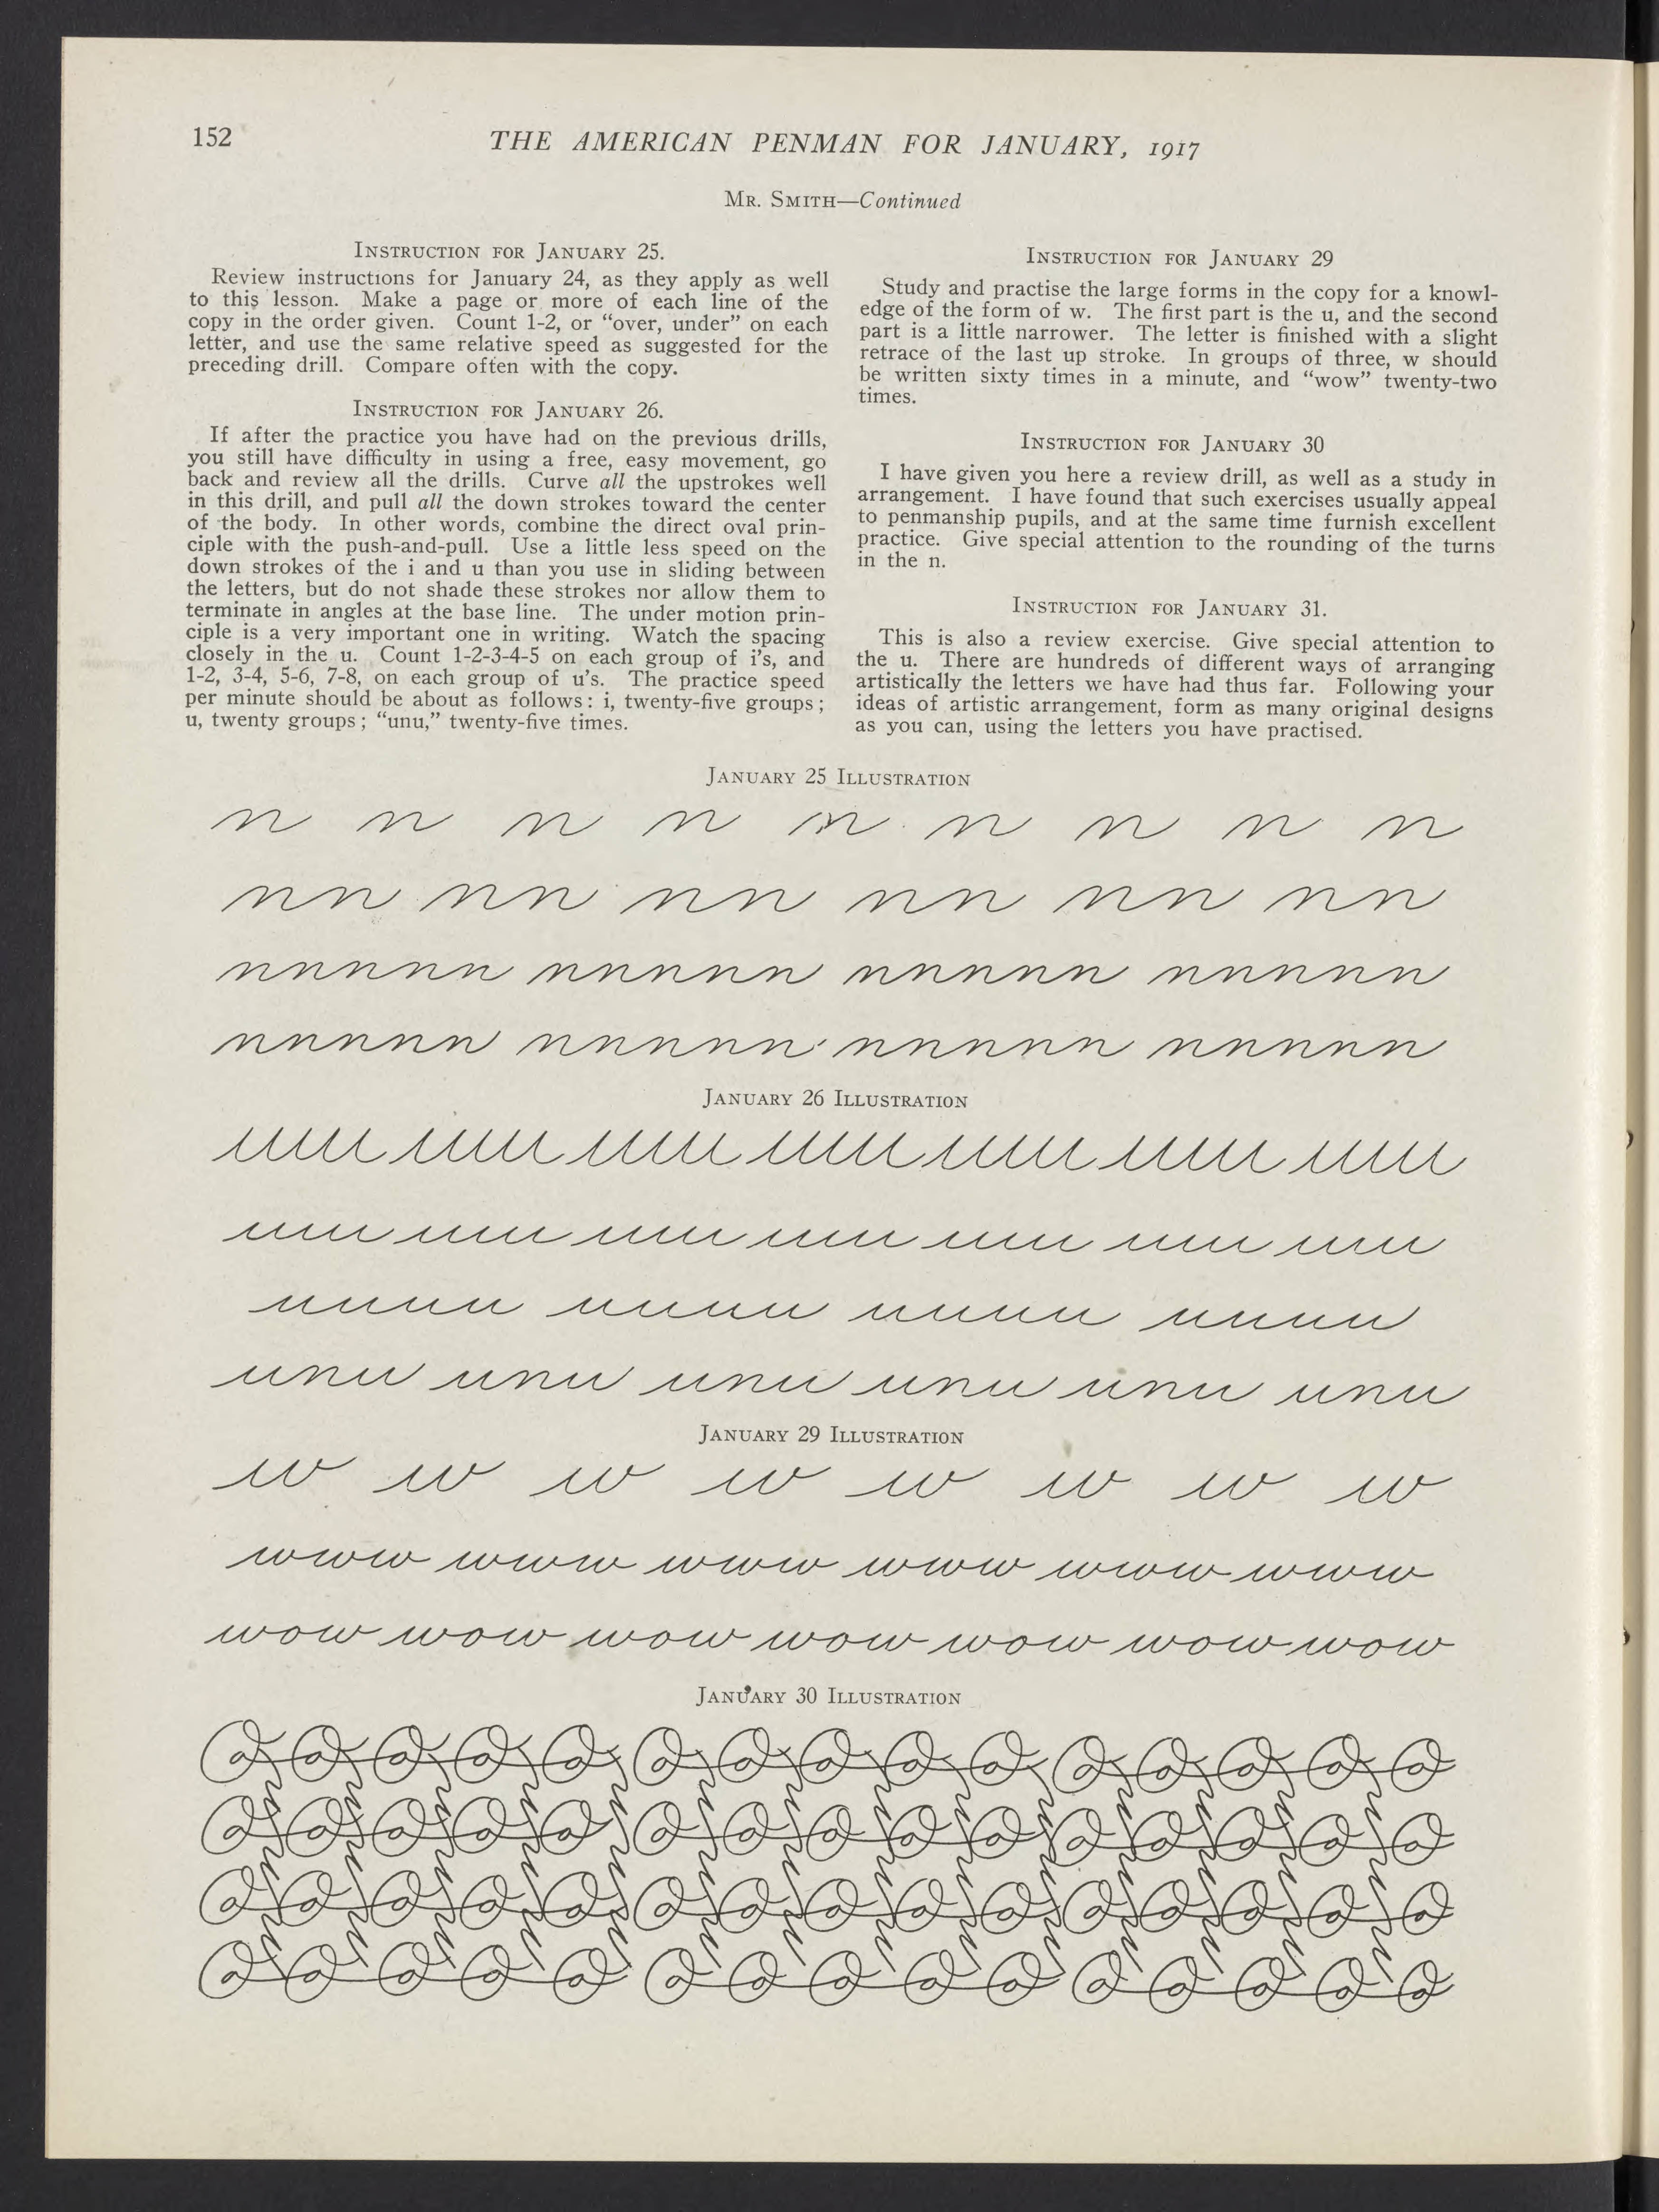 152
THE AMERICAN PENMAN FOR JANUARY, 1917
MR. SMITH—Continued
INSTRUCTION FOR JANUARY 25.
Review instructions for January 24, as they apply as well
to this lesson. Make a page or more of each line of the
copy in the order given. Count 1-2, or “over, under” on each
letter, and use the same relative speed as suggested for the
preceding drill. Compare often with the copy.
INSTRUCTION FOR JANUARY 26.
If after the practice you have had on the previous drills,
you still have difficulty in using a free, easy movement, go
back and review all the drills. Curve all the upstrokes well
in this drill, and pull all the down strokes toward the center
of the body. In other words, combine the direct oval prin-
ciple with the push-and-pull. Use a little less speed on the
down strokes of the i and u than you use in sliding between
the letters, but do not shade these strokes nor allow them to
terminate in angles at the base line. The under motion prin-
ciple is a very important one in writing. Watch the spacing
closely in the u. Count 1-2-3-4-5 on each group of i's, and
1-2, 3-4, 5-6, 7-8, on each group of u's. The practice speed
per minute should be about as follows: i, twenty-five groups;
u, twenty groups; “unu,” twenty-five times.
INSTRUCTION FOR JANUARY 29
Study and practise the large forms in the copy for a knowl-
edge of the form of w. The first part is the u, and the second
part is a little narrower. The letter is finished with a slight
retrace of the last up stroke. In groups of three, w should
be written sixty times in a minute, and “wow” twenty-two
times.
INSTRUCTION FOR JANUARY 30
I have given you here a review drill, as well as a study in
arrangement. I have found that such exercises usually appeal
to penmanship pupils, and at the same time furnish excellent
practice. Give special attention to the rounding of the turns
in the n.
INSTRUCTION FOR JANUARY 31.
This is also a review exercise. Give special attention to
the u. There are hundreds of different ways of arranging
artistically the letters we have had thus far. Following your
ideas of artistic arrangement, form as many original designs
as you can, using the letters you have practised.
JANUARY 25 ILLUSTRATION
n n n n n n n n n
nn nn nn nn nn nn
nnnnn nnnnn nnnnn nnnnn
nnnnn nnnnn nnnnn nnnnn
JANUARY 26 ILLUSTRATION
iiiii iiiii iiiii iiiii iiiii iiiii iiiii
iiiii iiiii iiiii iiiii iiiii iiiii iiiii
uuuu uuuu uuuu uuuu
unu unu unu unu unu unu
JANUARY 29 ILLUSTRATION
w w w w w w w w
www www www www www www
wow wow wow wow wow wow wow
JANUARY 30 ILLUSTRATION